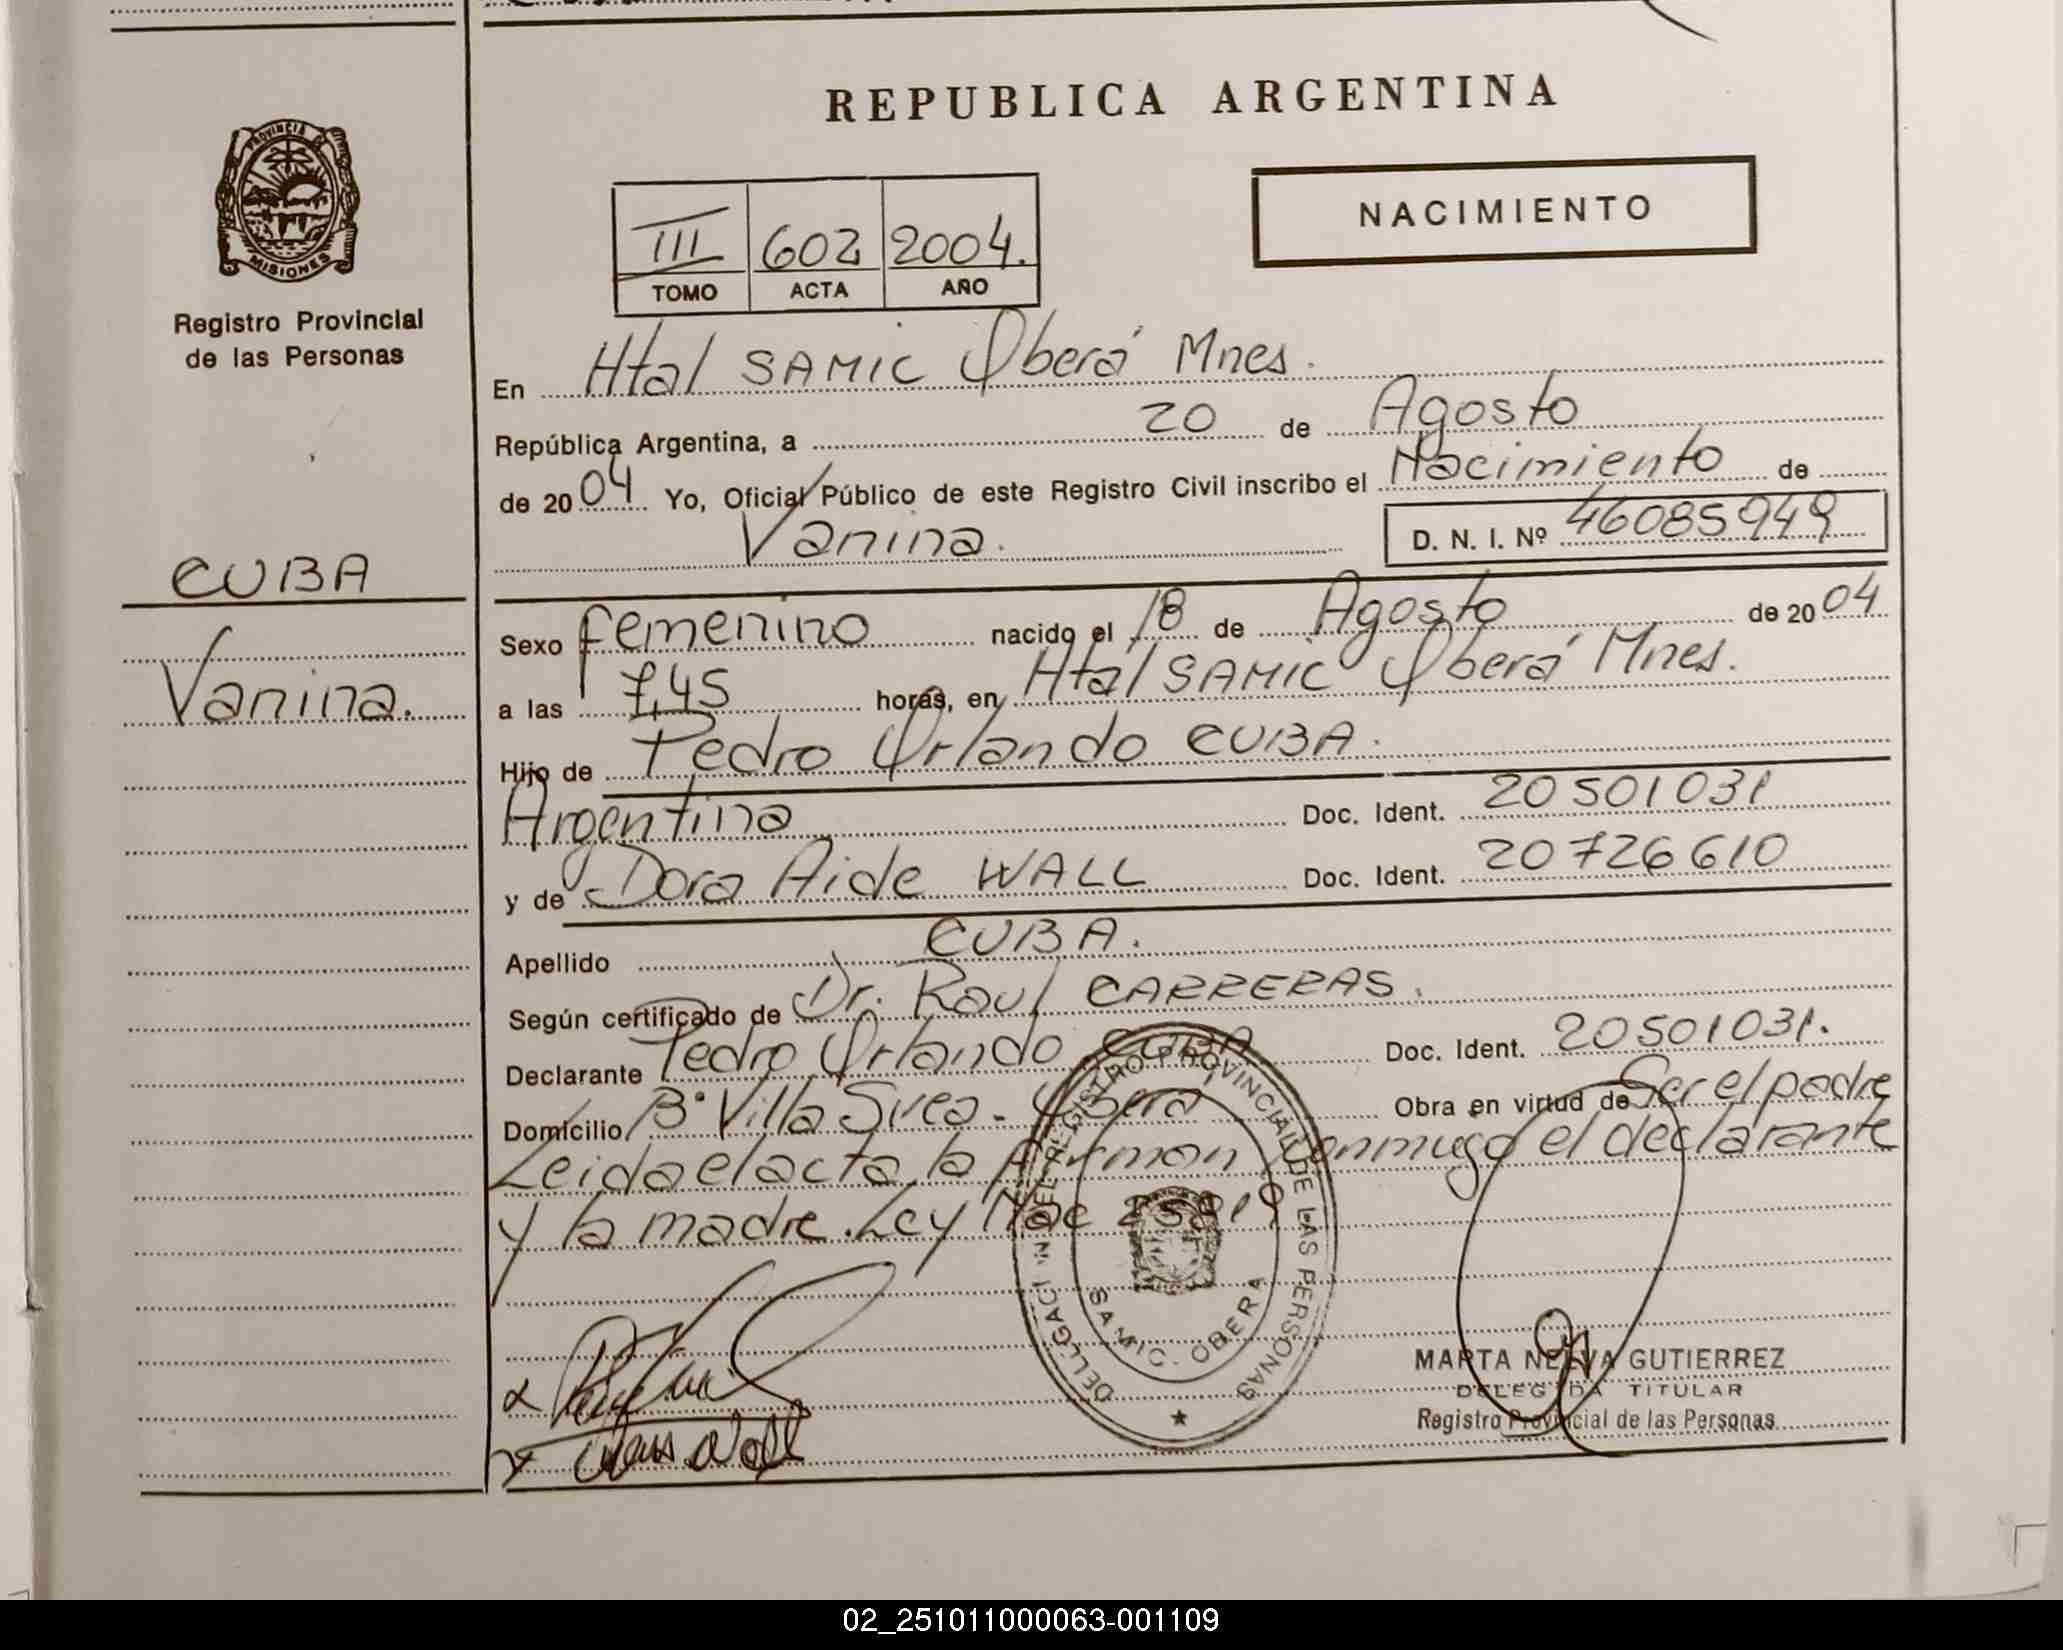 REPUBLICA ARGENTINA
PROVINCIA DE
MISIONES
Registro Provincial
de las Personas
CUBA
Vanina.
III 602 2004.
TOMO ACTA AÑO
NACIMIENTO
En Htal SAMIC Oberá Mnes.
República Argentina, a 20 de Agosto
de 2004 Yo, Oficial Público de este Registro Civil inscribo el Nacimiento de
Vanina. D. N. I. Nº 46085949
Sexo femenino nacido el 18 de Agosto de 2004
a las 7,45 horas, en Htal SAMIC Oberá Mnes.
Hijo de Pedro Orlando CUBA.
Argentina Doc. Ident. 20501031
y de Dora Aide WALL Doc. Ident. 20726610
Apellido CUBA.
Según certificado de Dr. Raul CARRERAS.
Declarante Pedro Orlando CUBA Doc. Ident. 20501031.
Domicilio Bº Villa Svea. Oberá Obra en virtud de Ser el padre
Leida el acta la firman conmigo el declarante
y la madre. Ley Nac 25819
DELEGACION DEL REGISTRO PROVINCIAL DE LAS PERSONAS
SAMIC - OBERA
MARTA NELVA GUTIERREZ
DELEGADA TITULAR
Registro Provincial de las Personas
02_251011000063-001109